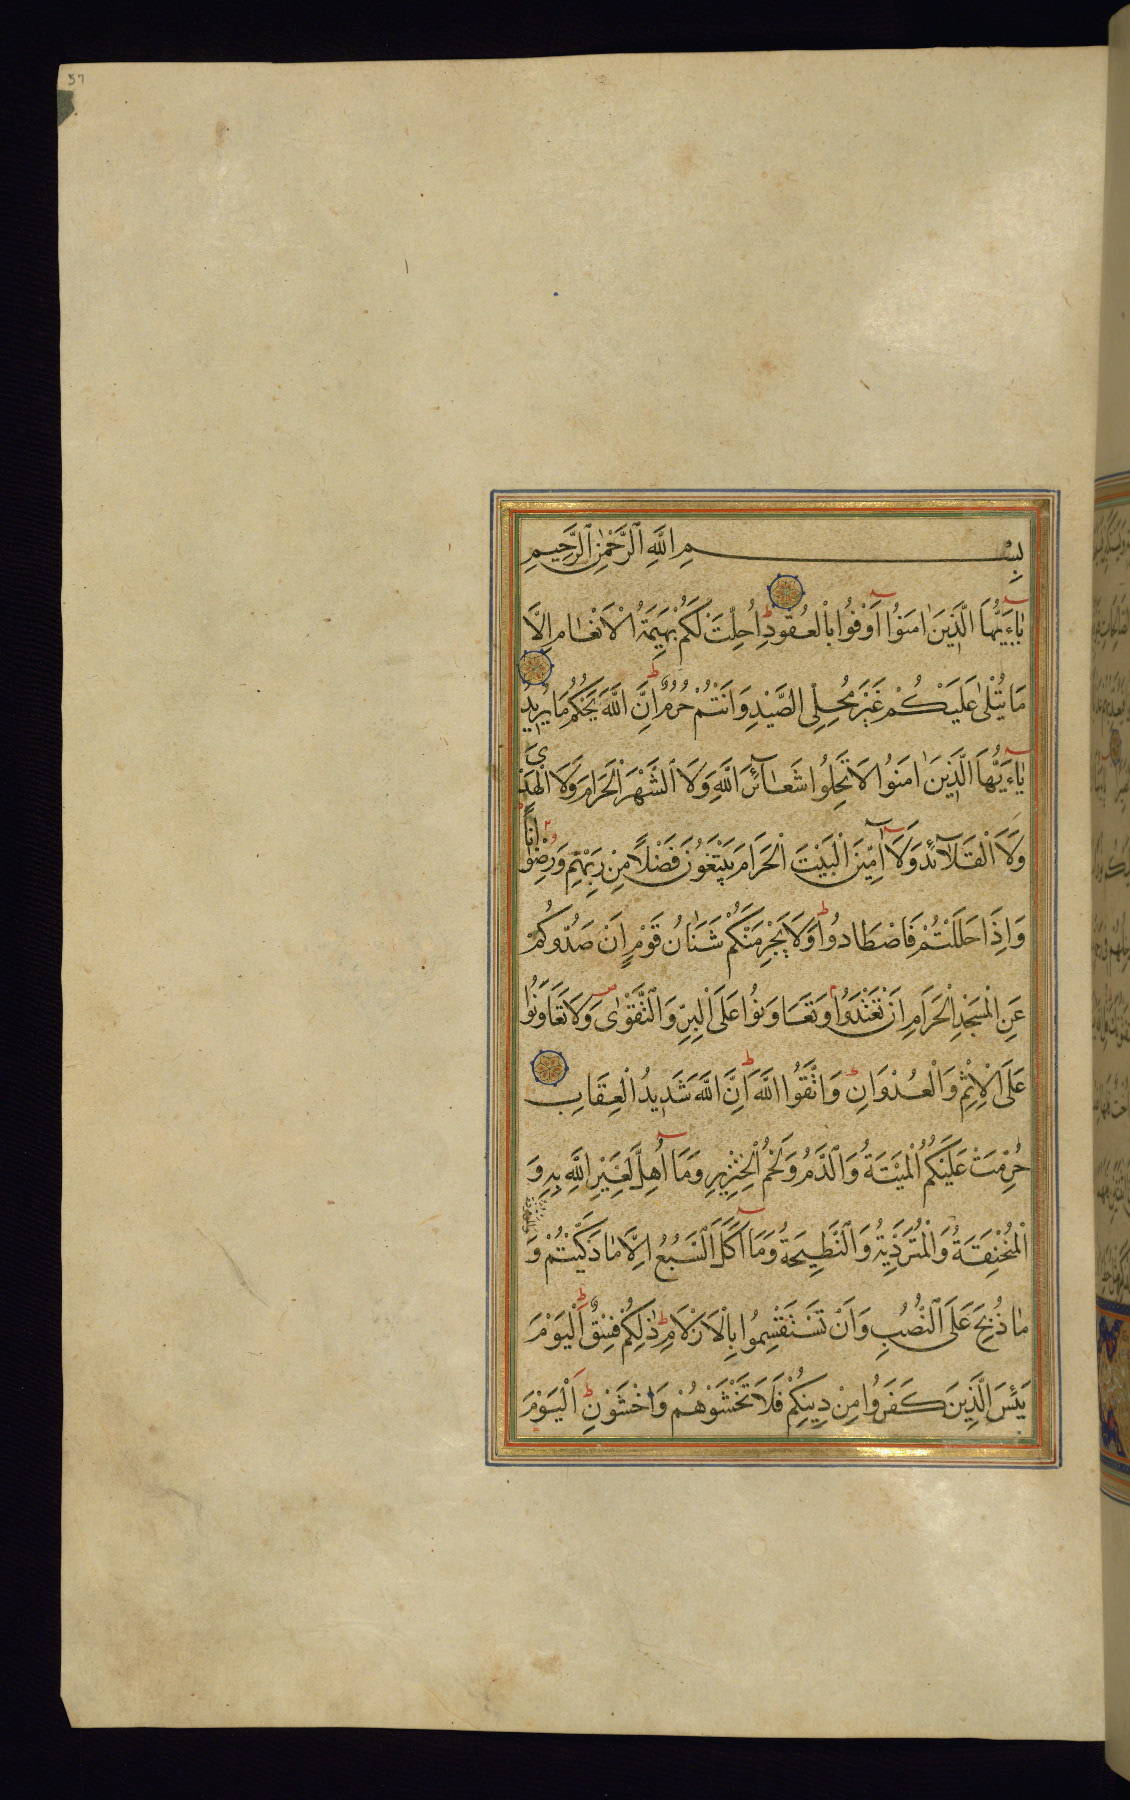 37
بِسْمِ اللَّهِ الرَّحْمٰنِ الرَّحِيمِ
يَاءَيُّهَا الَّذِينَ اٰمَنُوا اَوْفُوا بِالْعُقُودِ اُحِلَّتْ لَكُمْ بَهِيمَةُ الْاَنْعَامِ اِلَّا
مَا يُتْلٰى عَلَيْكُمْ غَيْرَ مُحِلِّى الصَّيْدِ وَاَنْتُمْ حُرُمٌ اِنَّ اللَّهَ يَحْكُمُ مَا يُرِيدُ
يَاءَيُّهَا الَّذِينَ اٰمَنُوا لَا تُحِلُّوا شَعَائِرَ اللَّهِ وَلَا الشَّهْرَ الْحَرَامَ وَلَا الْهَدْىَ
وَلَا الْقَلَائِدَ وَلَا اٰمِّينَ الْبَيْتَ الْحَرَامَ يَبْتَغُونَ فَضْلًا مِنْ رَبِّهِمْ وَرِضْوَانًا
وَاِذَا حَلَلْتُمْ فَاصْطَادُوا وَلَا يَجْرِمَنَّكُمْ شَنَاٰنُ قَوْمٍ اَنْ صَدُّوكُمْ
عَنِ الْمَسْجِدِ الْحَرَامِ اَنْ تَعْتَدُوا وَتَعَاوَنُوا عَلَى الْبِرِّ وَالتَّقْوٰى وَلَا تَعَاوَنُوا
عَلَى الْاِثْمِ وَالْعُدْوَانِ وَاتَّقُوا اللَّهَ اِنَّ اللَّهَ شَدِيدُ الْعِقَابِ
حُرِّمَتْ عَلَيْكُمُ الْمَيْتَةُ وَالدَّمُ وَلَحْمُ الْخِنْزِيرِ وَمَا اُهِلَّ لِغَيْرِ اللَّهِ بِهِ وَ
الْمُنْخَنِقَةُ وَالْمُتَرَدِّيَةُ وَالنَّطِيحَةُ وَمَا اَكَلَ السَّبُعُ اِلَّا مَا ذَكَّيْتُمْ وَ
مَا ذُبِحَ عَلَى النُّصُبِ وَاَنْ تَسْتَقْسِمُوا بِالْاَزْلَامِ ذٰلِكُمْ فِسْقٌ اَلْيَوْمَ
يَئِسَ الَّذِينَ كَفَرُوا مِنْ دِينِكُمْ فَلَا تَخْشَوْهُمْ وَاخْشَوْنِ اَلْيَوْمَ